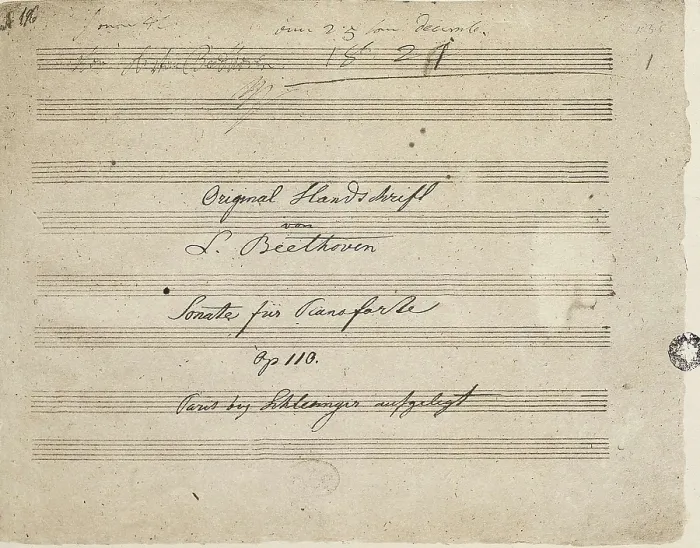 decemb.
1821
Original Handschrift
von
L. Beethoven
Sonate für Pianoforte
Op 110.
Paris bey Schlesinger aufgelegt